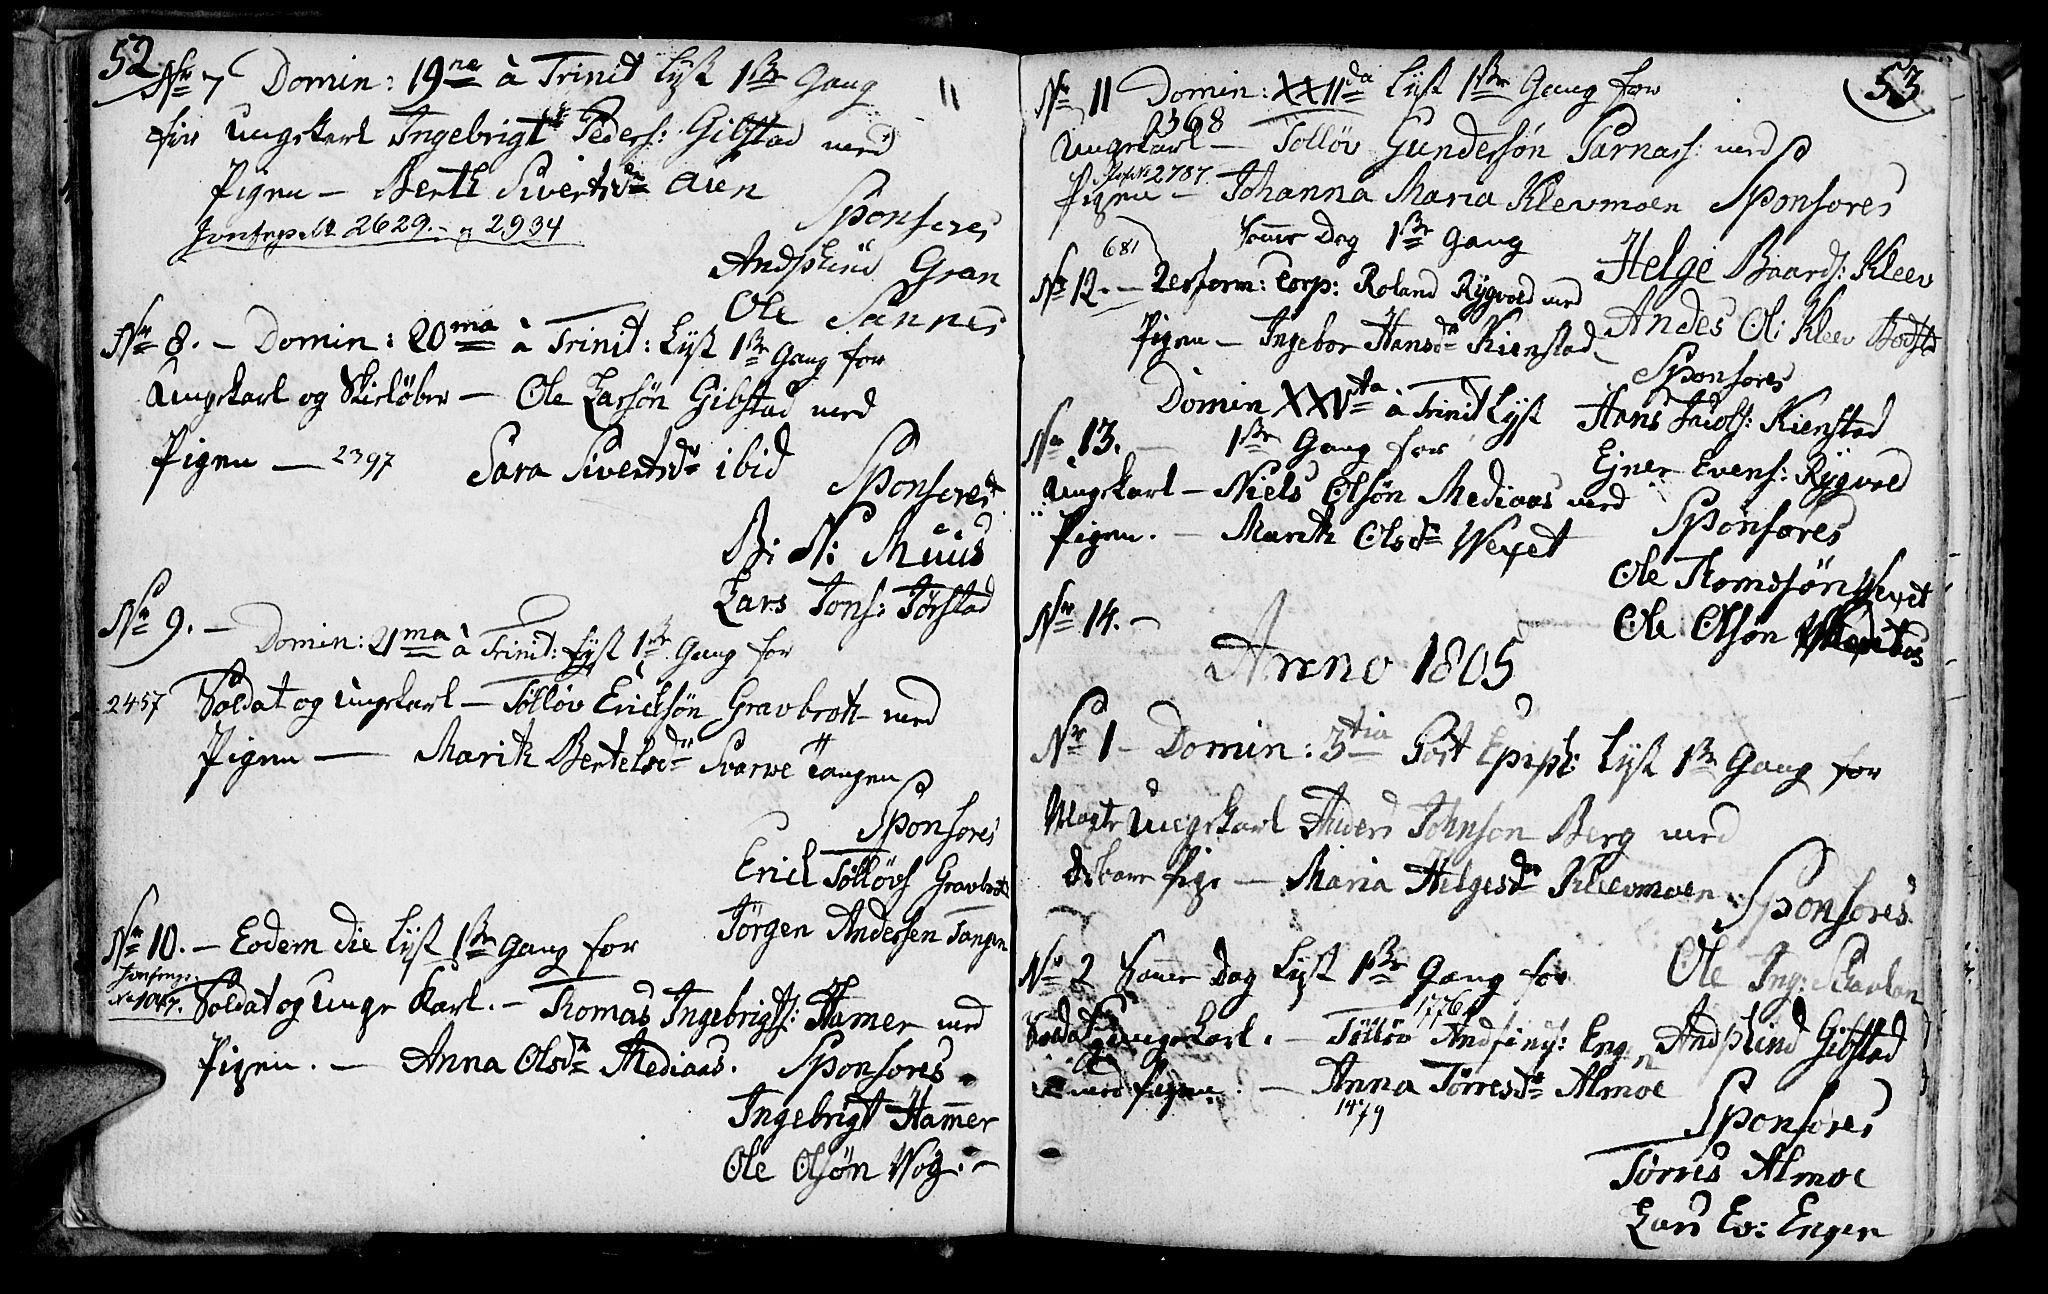 52
Nr 7 Domin: 19ne à Trinit Lyst 1ste Gang
for Ungekarl Ingebrigt Peders: Gibstad med
Pigen — Berth Sivertsdr Aien
2629. — og 2934
Sponsores
Andphind Gran
Ole Sannes
Nr 8. — Domin: 20ma à Trinit: Lyst 1ste Gang for
Ungekarl og Skieløber — Ole Larsön Gibstad med
Pigen — 2397 Sara Sivertsdr ibid
Sponsores
B: N: Muus
Lars Jons: Törstad
Nr 9. — Domin: 21ma à Trinit: Lyst 1ste Gang for
2457 Soldat og Ungekarl — Tölløv Ericksön Gravbrøtt med
Pigen — Marith Bertelsdr Svarve Tangen
Sponsores
Erick Tölløvs Gravbrøt
Jörgen Andersen Tangen
Nr 10. — Eodem die Lyst 1ste Gang for
Soldat og Unge Karl. — Thomas Ingebrigts: Hamer med
Pigen. — Anna Olsdr Mediaas. Sponsores
Ingebrigt Hammer
Ole Olsön Wog. —
11
53
Nr 11 Domin: XXIIda Lyst 1ste Gang for
2368
Ungekarl — Tolløv Gundersön Parnass: med
2787
Pigen — Johanna Maria Klevmoen Sponsores
Helge Baards: Kleev
Andes Ol: Kleev
681 Samme Dag 1ste Gang
Nr 12. — Corp: Roland Rygvold med
Pigen — Ingebor Hansdr Kienstad
Sponsores
Hans Jacobs: Kienstad
Ejner Evens: Rÿgvold
Domin XXVta à Trinit Lyst
Nr 13. — 1ste Gang for
Ungekarl — Niels Olsön Mediaas med
Pigen. — Marith Olsdr Wexet
Sponsores
Ole Thomdsön Wexet
Ole Olsön
Nr 14. —
Anno 1805
Nr 1 — Domin: 3tia Post Epiph: Lyst 1ste Gang for
Ungekarl Anders Johnson Berg med
Pige — Maria Helgesdr Kleevmoen
Sponsores
Ole Ing: Skavlan
Andphind Gibstad
Nr 2 Samme Dag Lyst 1ste Gang for
1776
Soldat Ungekarl. — Tölløv Andfiny: Eng
med Pigen. — Anna Törresdr Almoe
1479
Sponsores
Torres Almoe
Lars Ev: Enger